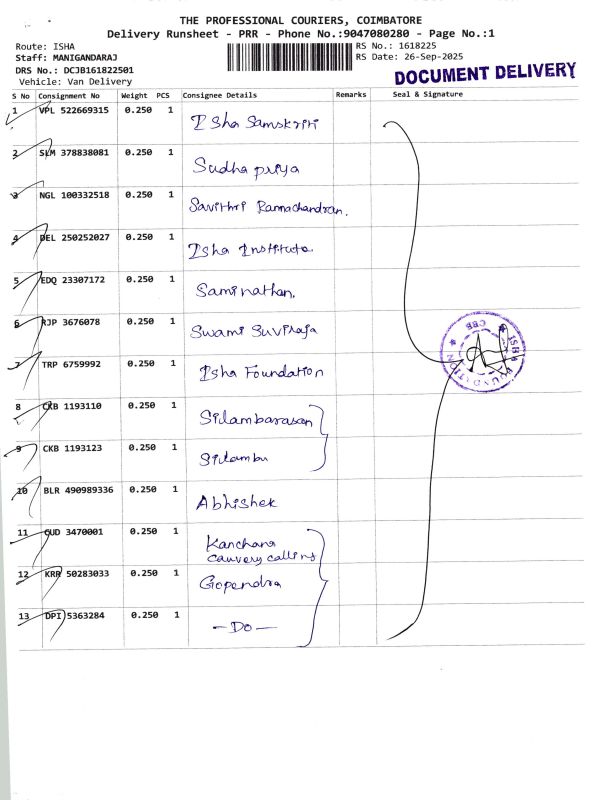 THE PROFESSIONAL COURIERS, COIMBATORE
Delivery Runsheet - PRR - Phone No.:9047080280 - Page No.:1
Route: ISHA
RS No.: 1618225
Staff: MANIGANDARAJ
RS Date: 26-Sep-2025
DRS No.: DCJB161822501
Vehicle: Van Delivery
DOCUMENT DELIVERY
S No Consignment No Weight PCS Consignee Details Remarks Seal & Signature
1 VPL 522669315 0.250 1 Isha Samskriti
2 SLM 378838081 0.250 1 Sudha priya
3 NGL 100332518 0.250 1 Savithri Ramachandran.
4 DEL 250252027 0.250 1 Isha Institute
5 EDQ 23307172 0.250 1 Saminathan.
6 RJP 3676078 0.250 1 Swami Suviraja
7 TRP 6759992 0.250 1 Isha Foundation
8 CKB 1193110 0.250 1 Silambarasan
9 CKB 1193123 0.250 1 Silambu
10 BLR 490989336 0.250 1 Abhishek
11 GUD 3470001 0.250 1 Kanchana
cauvery calling
12 KRR 50283033 0.250 1 Gopendra
13 DPI 5363284 0.250 1 - Do -
ISHA FOUNDATION
CBE